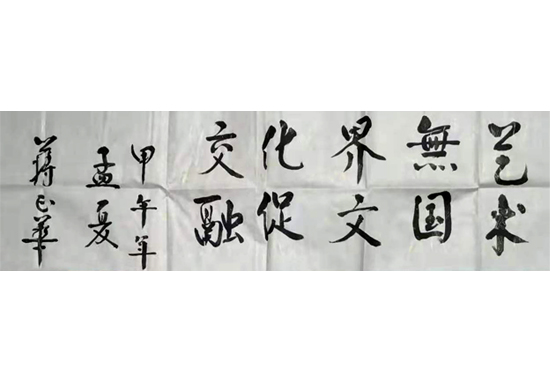 艺术
無国
界文
化促
交融
甲午年
孟夏
蒋正华